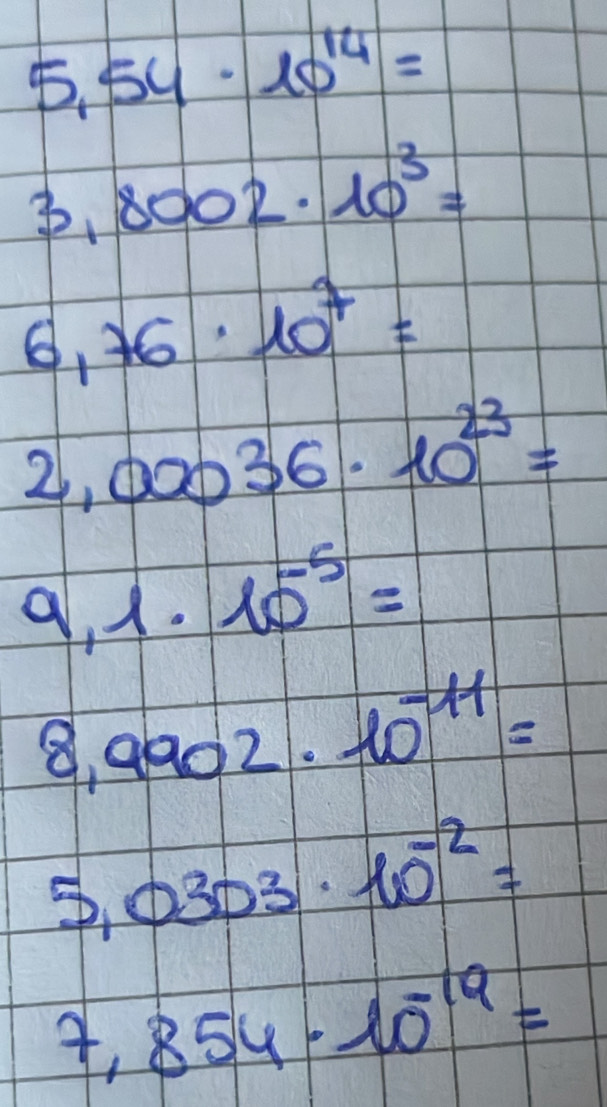 5,54 · 10¹⁴ =
3,8002 · 10³ =
6,76 · 10⁷ =
2,00036 · 10²³ =
9,1 · 10⁻⁵ =
8,9902 · 10⁻¹¹ =
5,0303 · 10⁻² =
7,854 · 10⁻¹⁹ =